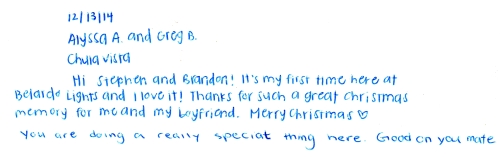 12/13/14
Alyssa A. and Greg B.
Chula Vista
Hi Stephen and Brandon! It's my first time here at
Belardo Lights and I love it! Thanks for such a great Christmas
memory for me and my boyfriend. Merry Christmas ♡
You are doing a really special thing here. Good on you mate